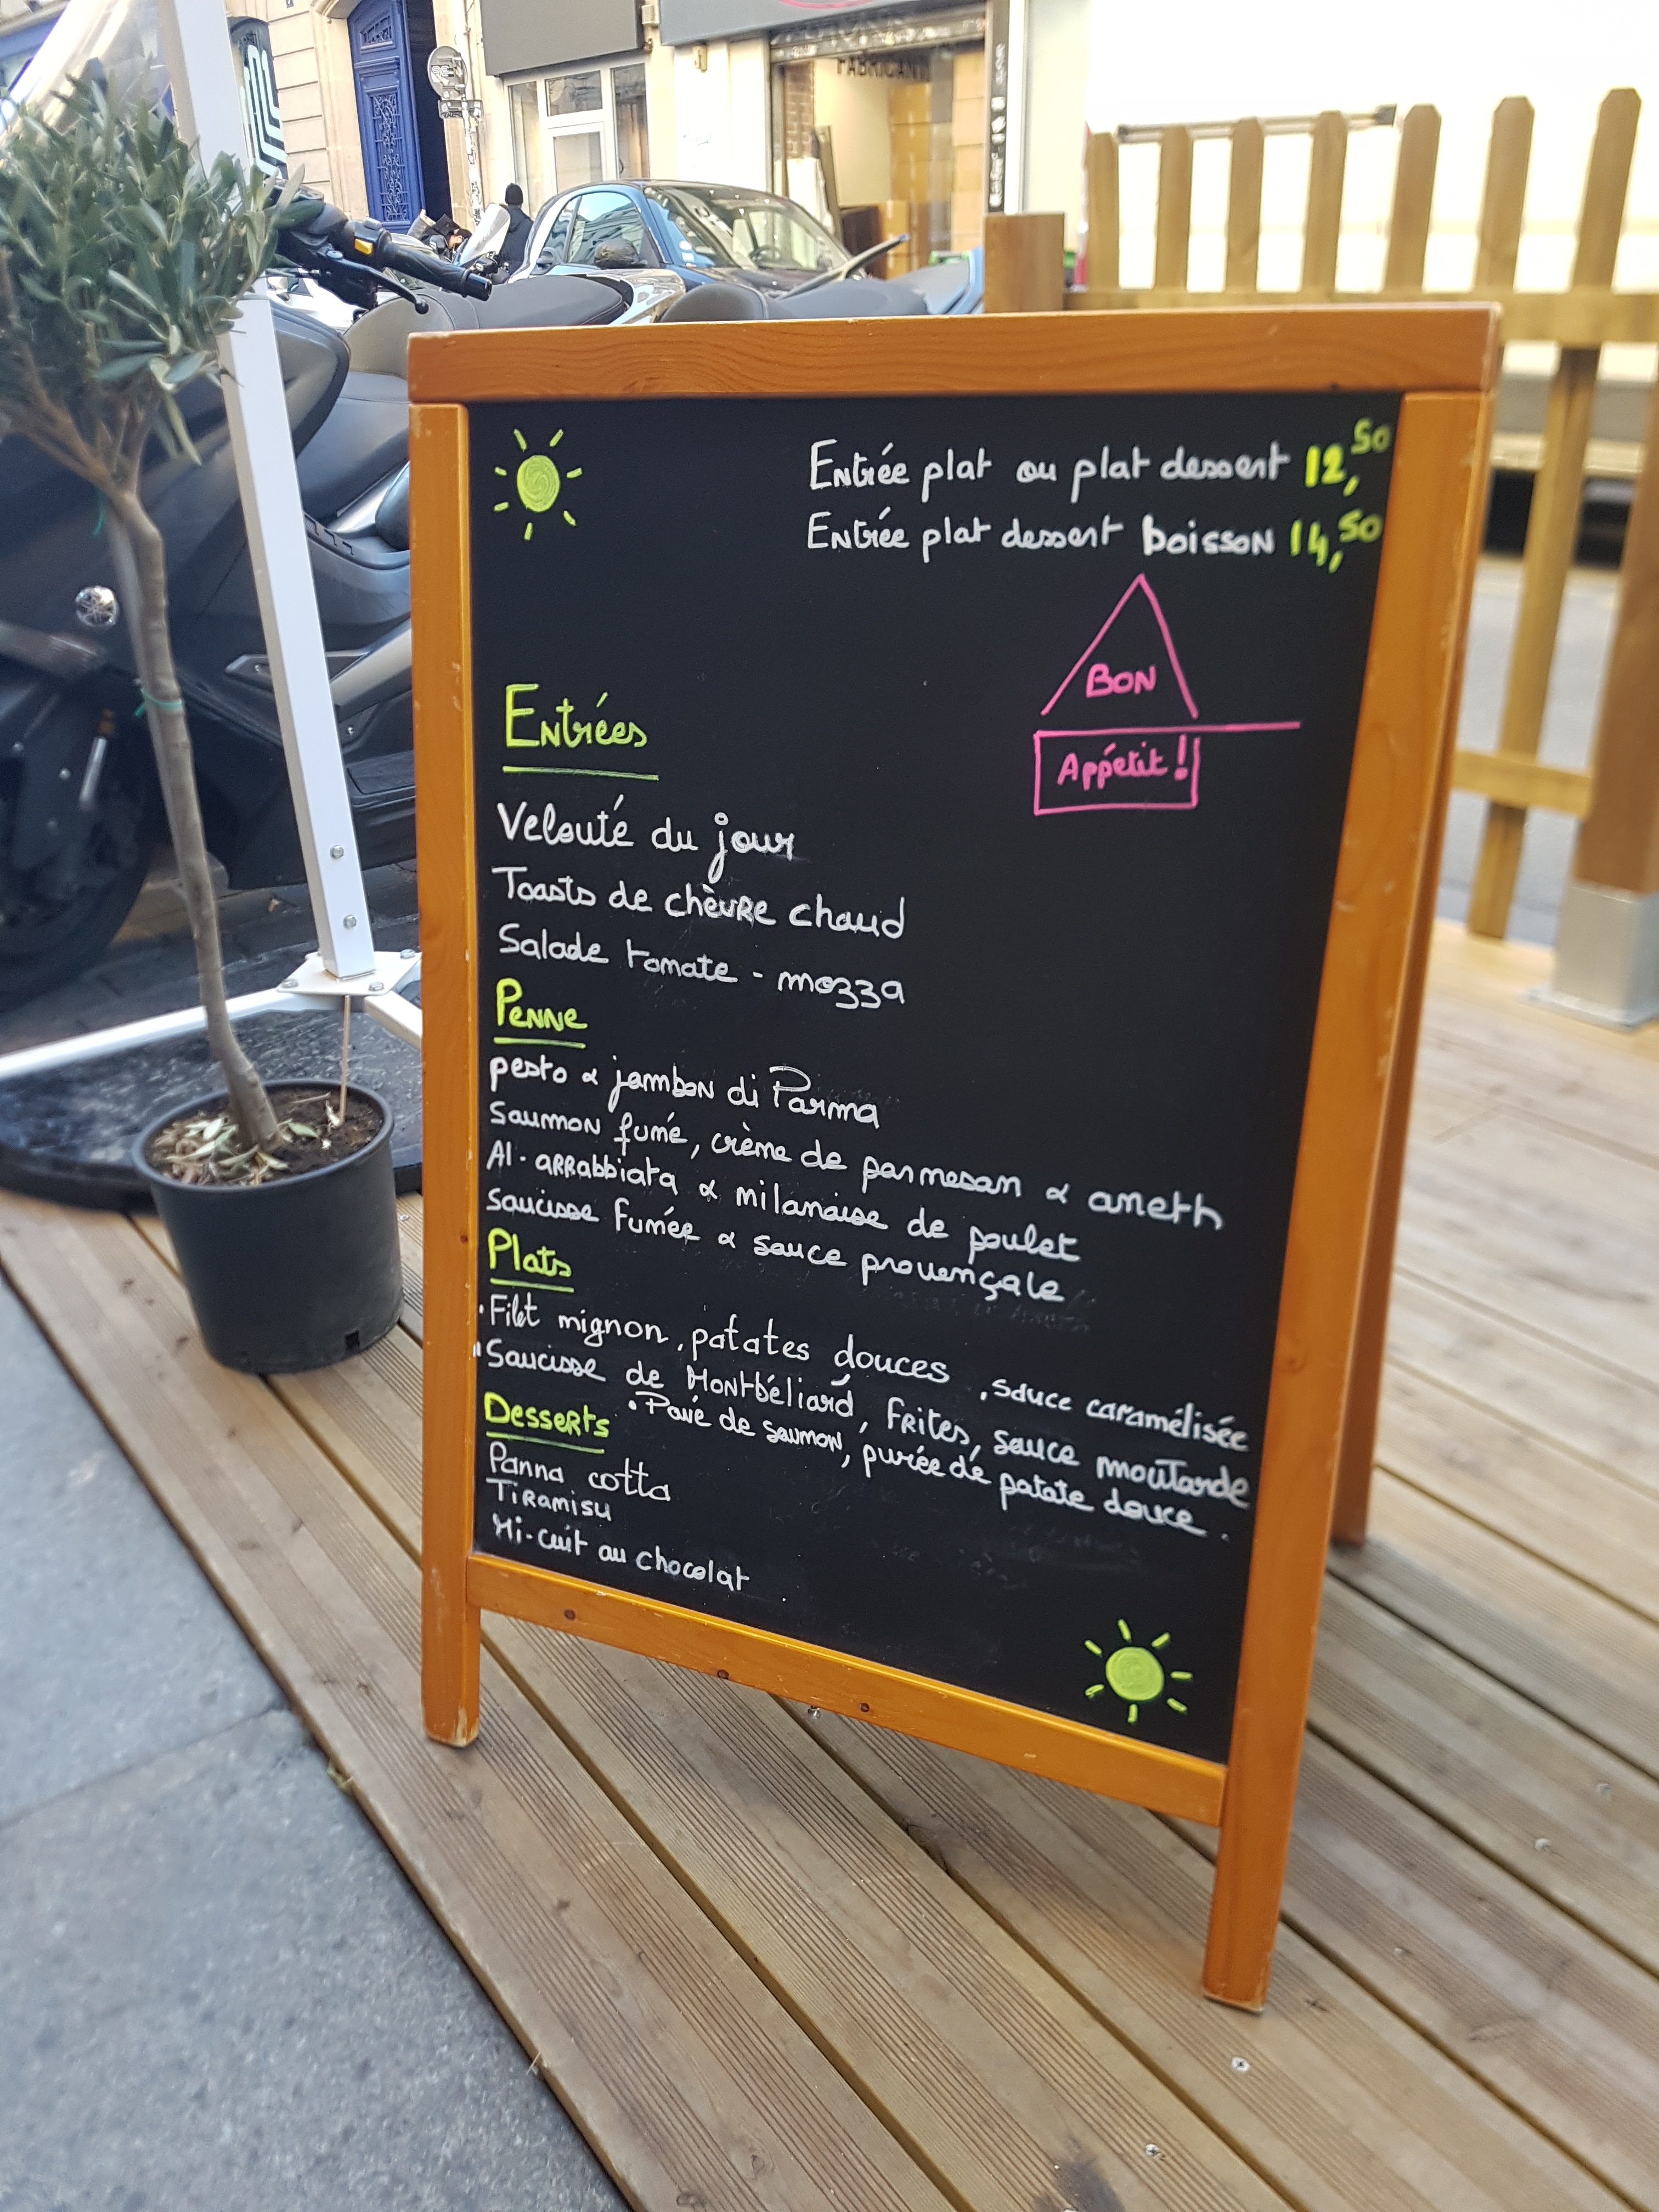 FABRICANT
Entrée plat ou plat dessert 12,50
Entrée plat dessert boisson 14,50
BON
Appétit !
Entrées
Velouté du jour
Toasts de chèvre chaud
Salade tomate - mozza
Penne
pesto & jambon di Parma
Saumon fumé, crème de parmesan & aneth
Al-arrabbiata & milanaise de poulet
saucisse fumée & sauce provençale
Plats
· Filet mignon, patates douces, sauce caramélisée
· Saucisse de Montbéliard, frites, sauce moutarde
· Pavé de saumon, purée de patate douce.
Desserts
Panna cotta
Tiramisu
Mi-cuit au chocolat